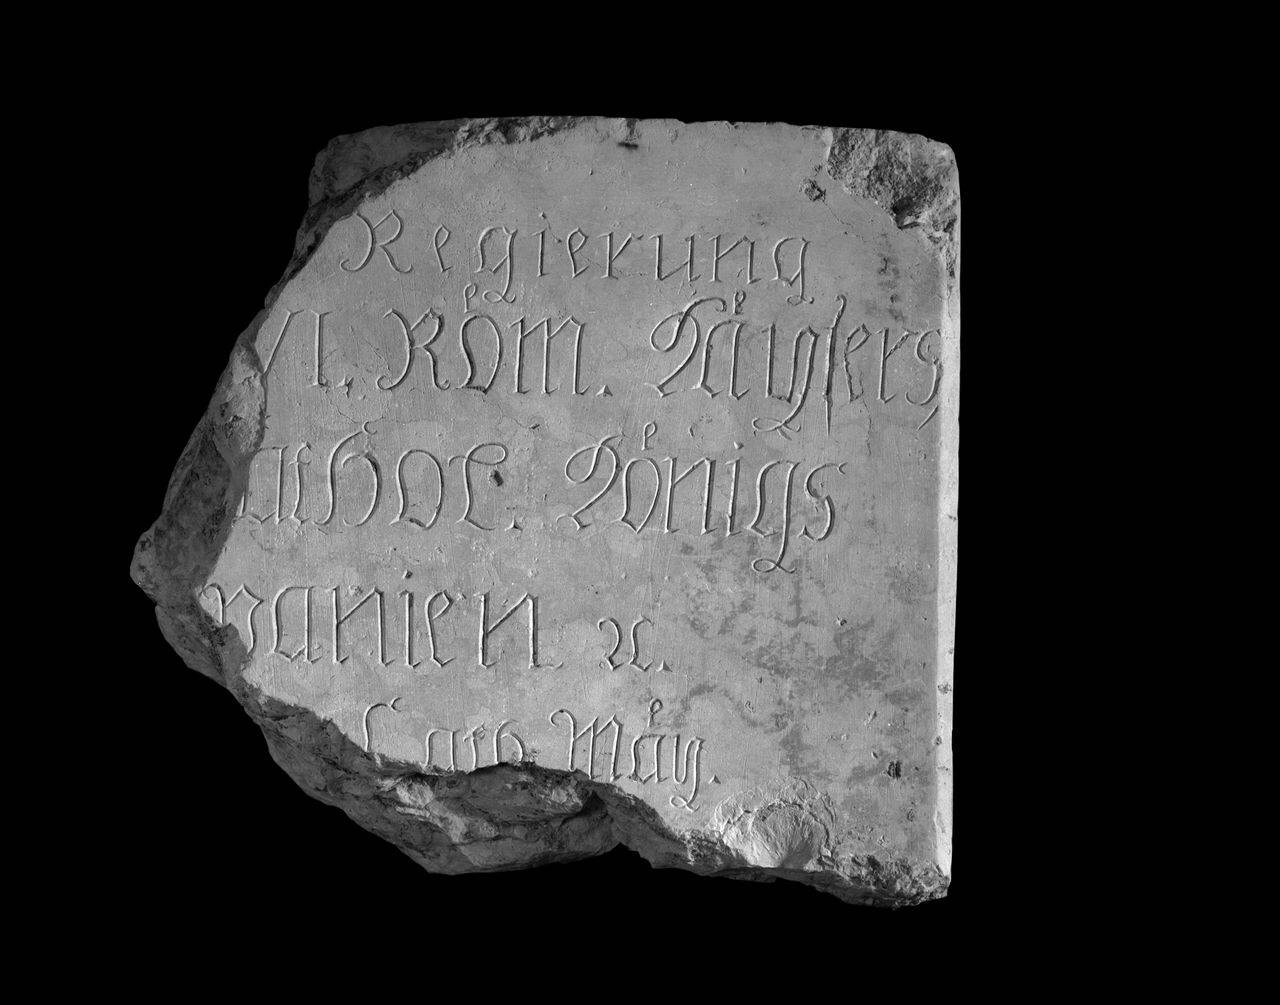 Regierung
VI. Röm. Käÿsers,
athol. Königs
panien ꝛc.
Cath. Mäÿ.